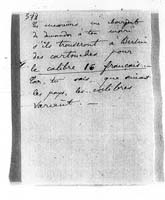 318
Tu serais un
de demander à ton mari
s'ils trouveront à Berlin
des cartouches pour
le calibre 16 français.
Car, tu sais, que suivant
les pays, les calibres
varient. —